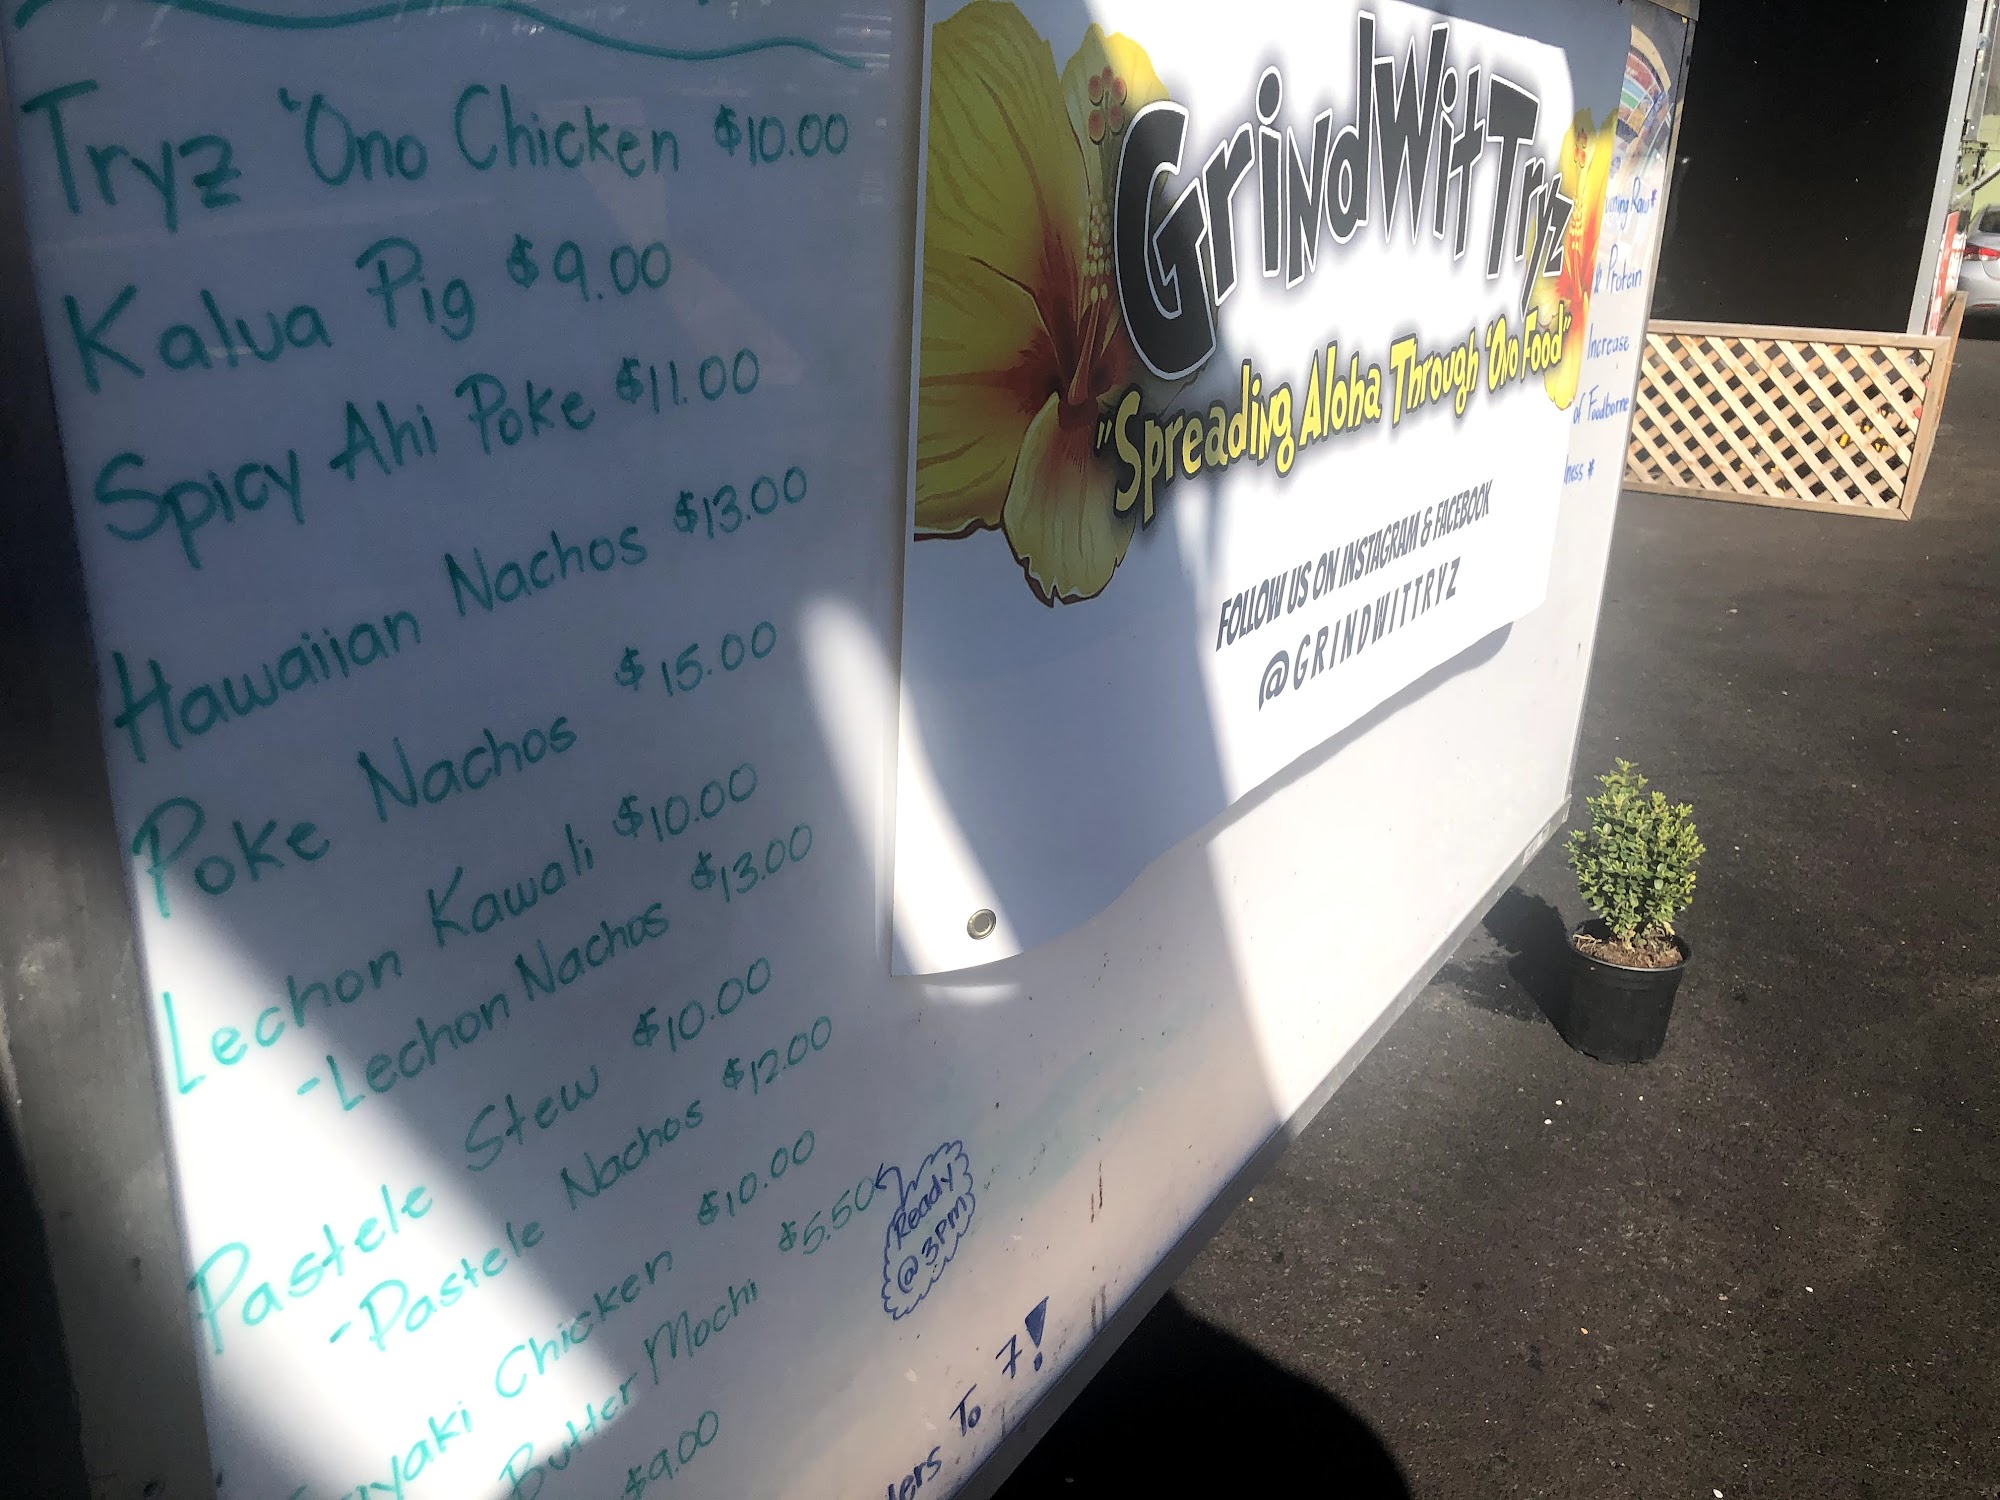 Tryz 'Ono Chicken $10.00
Kalua Pig $9.00
Spicy Ahi Poke $11.00
Hawaiian Nachos $13.00
Poke Nachos $15.00
Lechon Kawali $10.00
-Lechon Nachos $13.00
Pastele Stew $10.00
-Pastele Nachos $12.00
Chicken $10.00
Butter Mochi $5.50
Ready
@ 3PM
$9.00
To 7!
GrindWitTryz
"Spreading Aloha Through 'Ono Food"
FOLLOW US ON INSTAGRAM & FACEBOOK
@GRINDWITTRYZ
Raw*
Protein
Increase
of Foodborne